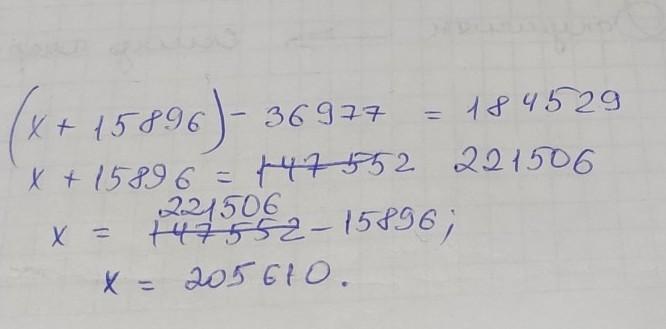 (x + 15896) - 36977 = 184529
x + 15896 = 147552 221506
221506
x = 147552 - 15896;
x = 205610.